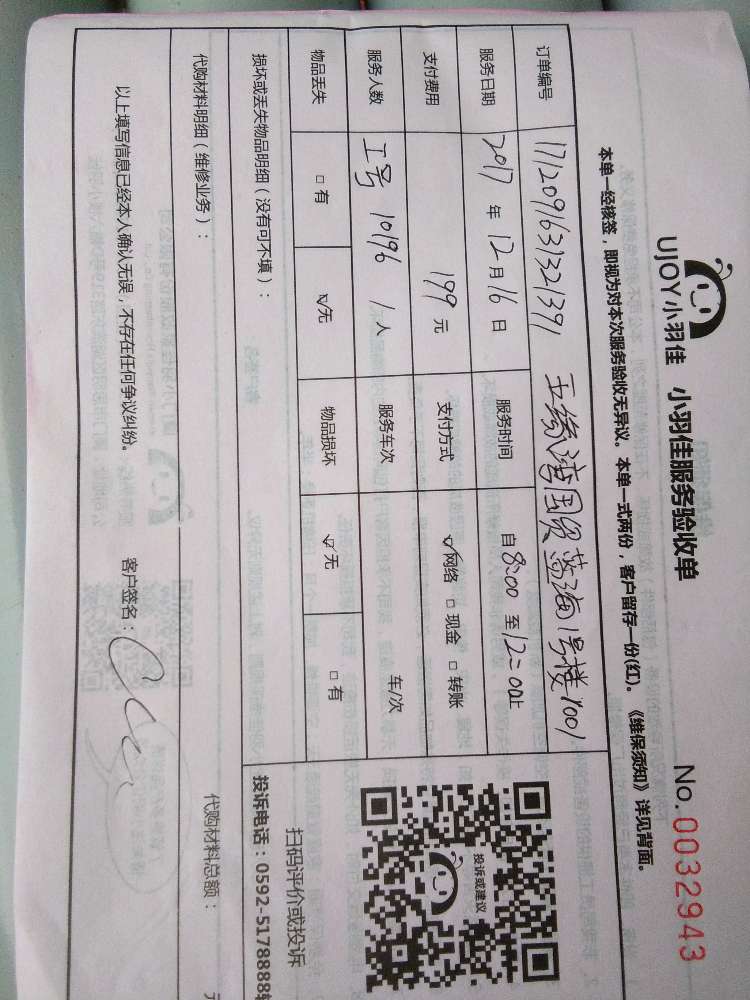 UJOY小羽佳 小羽佳服务验收单 No.0032943
本单一经核签，即视为对本次服务验收无异议。本单一式两份，客户留存一份(红)。《维保须知》详见背面。
订单编号 1712091631321391 五缘湾国贸蓝海1号楼1001
服务日期 2017 年 12 月 16 日 服务时间 自 8:00 至 12:00止
支付费用 199 元 支付方式 ☑网络 □现金 □转账
服务人数 工号 10196 1 人 服务车次 车/次
物品丢失 □有 ☑无 物品损坏 ☑无 □有
投诉或建议
扫码评价或投诉
投诉电话：0592-5178888转
损坏或丢失物品明细（没有可不填）：
代购材料明细（维修业务）： 代购材料总额： 元
以上填写信息已经本人确认无误，不存在任何争议纠纷。 客户签名：